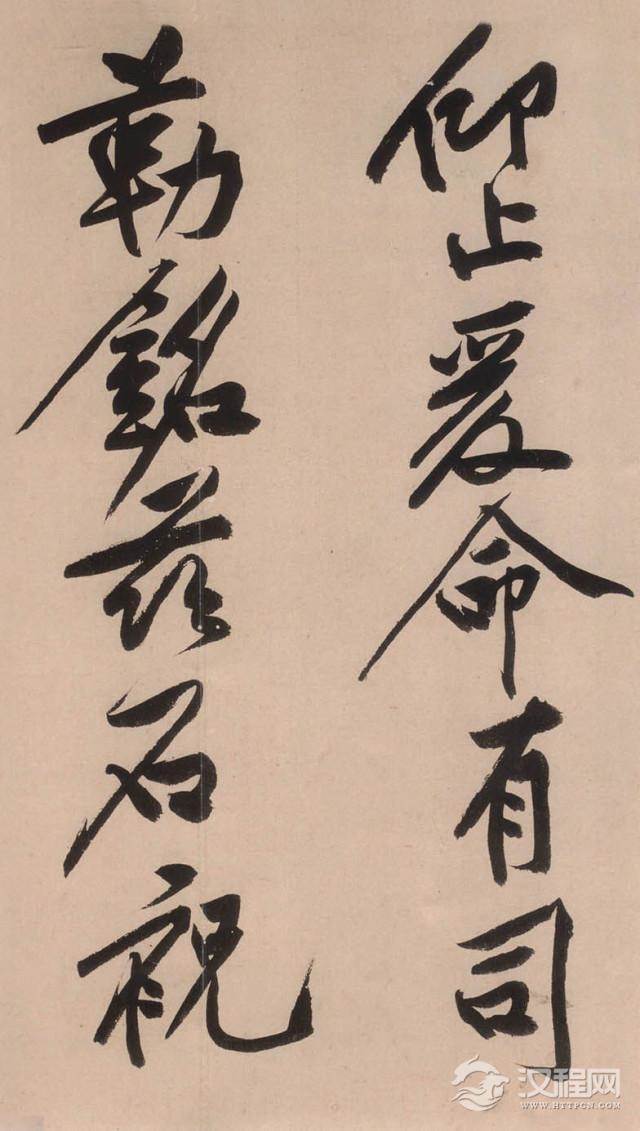 仰止爰命有司
勒銘茲石祝
汉程网
WWW.HTTPCN.COM